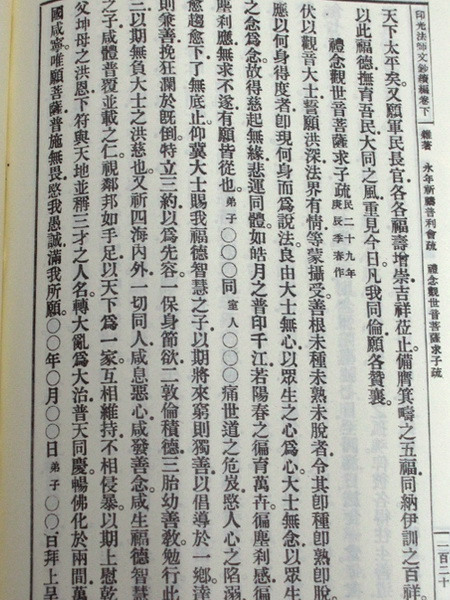 印光法師文鈔續編卷下
雜著
永年祈禱普利會疏
禮念觀世音菩薩求子疏
一百二十
天下太平矣。又願軍民長官各各福壽增崇吉祥莅止備膺箕疇之五福同納伊訓之百祥。
以此福德撫育吾民大同之風重見今日。凡我同倫願各贊襄。
禮念觀世音菩薩求子疏 民二十九年庚辰季春作
伏以觀音大士誓願洪深法界有情等蒙攝受善根未種未熟未脫者令其卽種卽熟卽脫。
應以何身得度者卽現何身而爲說法良由大士無心以眾生之心爲心大士無念以眾生
之念爲念故得慈起無緣悲運同體如皓月之普印千江若陽春之徧育萬卉徧塵利感徧
塵利應無求不遂有願皆從也。弟子〇〇〇同室人〇〇〇痛世道之危岌愍人心之陷溺
愈趨愈下了無底止仰冀大士賜我福德智慧之子以期將來窮則獨善以倡導於一鄉達
則兼善挽狂瀾於旣倒特立三約以爲先容一保身節欲二敦倫積德三胎幼善敎勉行此
三以期無負大士之洪慈也。又祈四海內外一切同人咸息惡心咸發善念咸生福德智慧
之子咸體普覆並載之仁視鄰邦如手足以天下爲一家互相維持不相侵暴以期上慰乾
父坤母之洪恩下符與天地並稱三才之人名轉大亂爲大治普天同慶暢佛化於兩間萬
國咸寧唯願菩薩普施無畏愍我愚誠滿我所願〇〇年〇月〇〇日弟子〇〇〇拜上呈